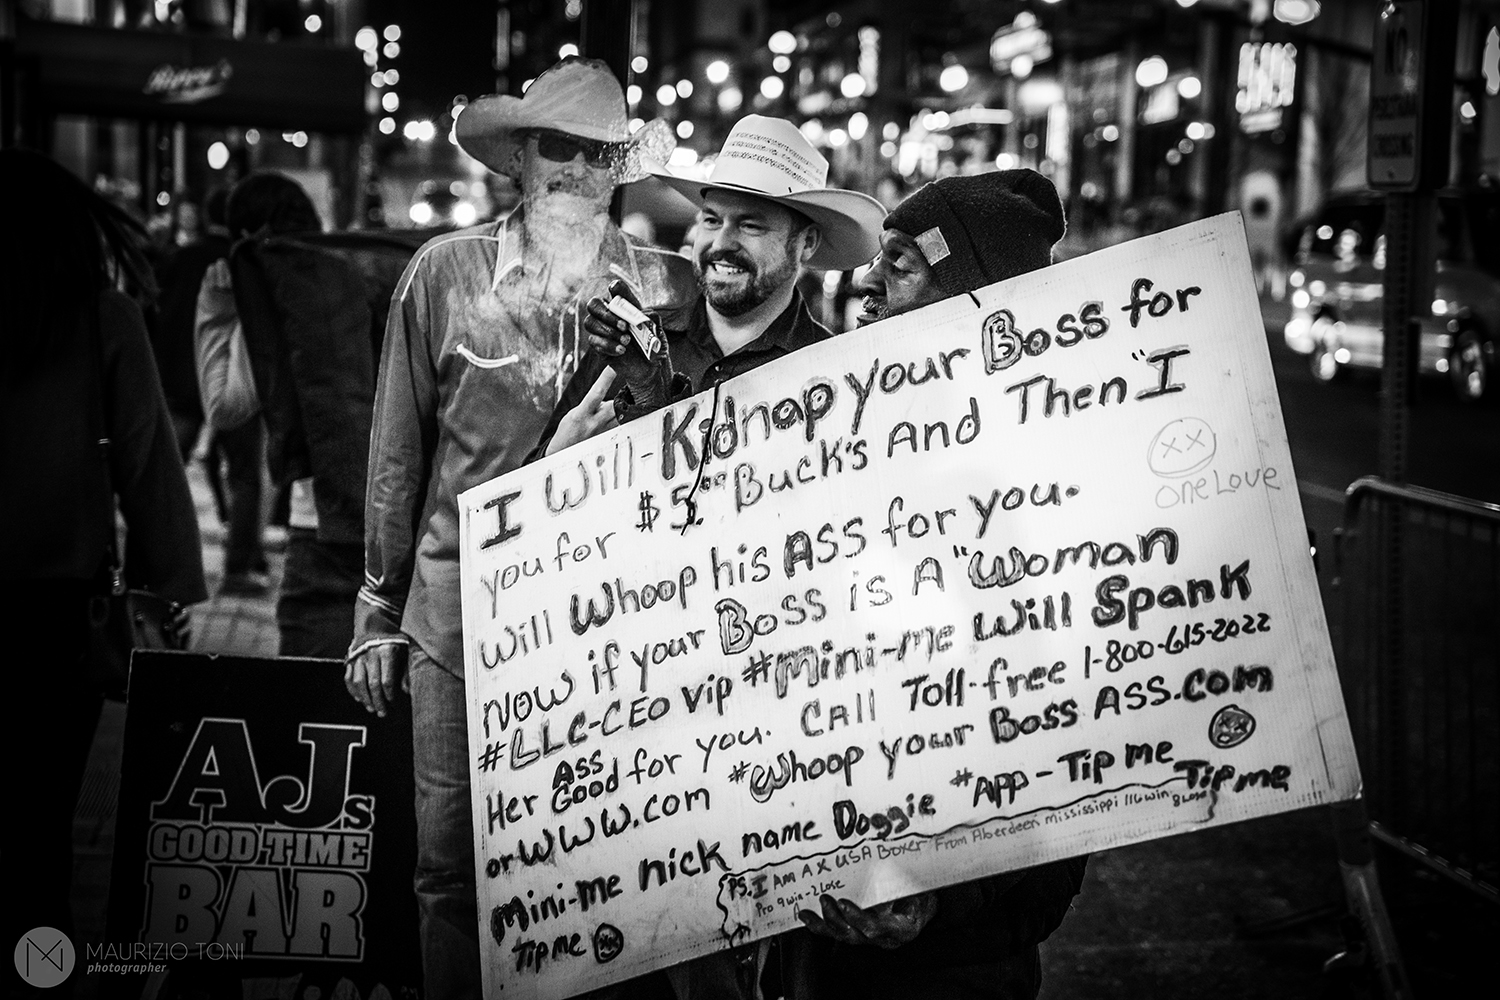 Rippy's
NO
I Will-Kidnap your Boss for
you for $5.00 Buck's And Then "I
Will Whoop his Ass for you.
XX
ONE LOVE
Now if your Boss is A "Woman
#LLC-CEO vip #Mini-me Will Spank
Her Ass Good for you. CAll Toll-free 1-800-615-2022
or WWW.com #Whoop your Boss Ass.com
mini-me nick name Doggie #App-Tip me Tip me
Tip me
PS. I Am A X USA Boxer From Aberdeen Mississippi 116 win 8 Lose
Pro 9 win-2 Lose
AJs
GOOD TIME
BAR
MAURIZIO TONI
photographer